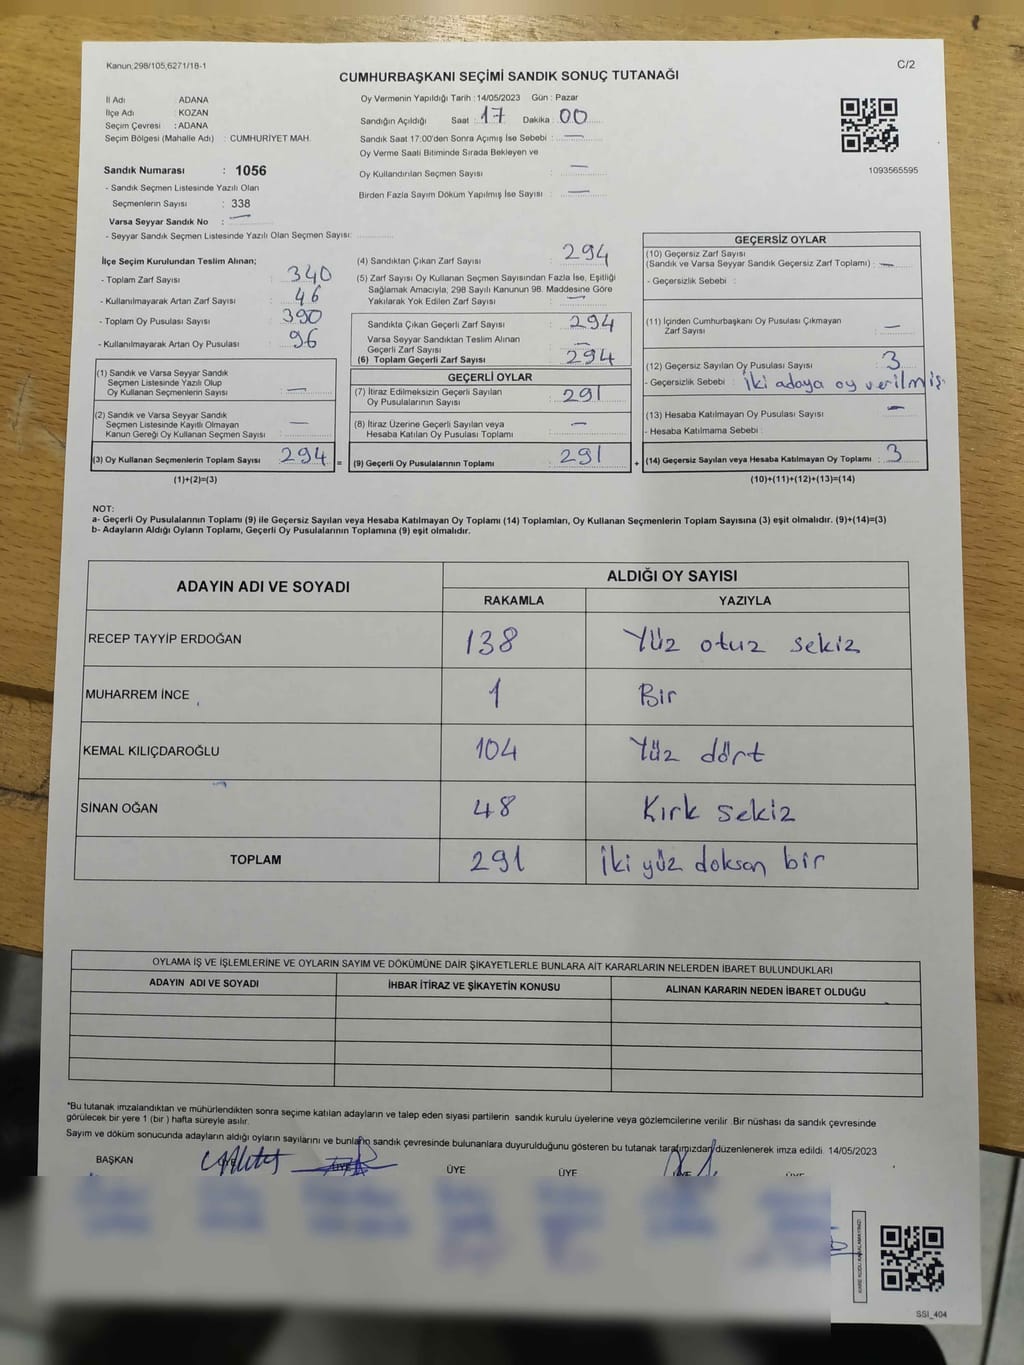 Kanun,298/105,6271/18-1
C/2
CUMHURBAŞKANI SEÇİMİ SANDIK SONUÇ TUTANAĞI
İl Adı : ADANA
İlçe Adı : KOZAN
Seçim Çevresi : ADANA
Seçim Bölgesi (Mahalle Adı) : CUMHURİYET MAH.
Sandık Numarası : 1056
- Sandık Seçmen Listesinde Yazılı Olan
Seçmenlerin Sayısı : 338
Varsa Seyyar Sandık No : —
- Seyyar Sandık Seçmen Listesinde Yazılı Olan Seçmen Sayısı:
Oy Vermenin Yapıldığı Tarih :14/05/2023 Gün : Pazar
Sandığın Açıldığı Saat : 17 Dakika : 00
Sandık Saat 17:00'den Sonra Açımış İse Sebebi : —
Oy Verme Saati Bitiminde Sırada Bekleyen ve
Oy Kullandırılan Seçmen Sayısı : —
Birden Fazla Sayım Döküm Yapılmış İse Sayısı : —
1093565595
İlçe Seçim Kurulundan Teslim Alınan;
- Toplam Zarf Sayısı : 340
- Kullanılmayarak Artan Zarf Sayısı : 46
- Toplam Oy Pusulası Sayısı : 390
- Kullanılmayarak Artan Oy Pusulası : 96
(1) Sandık ve Varsa Seyyar Sandık
Seçmen Listesinde Yazılı Olup
Oy Kullanan Seçmenlerin Sayısı : —
(2) Sandık ve Varsa Seyyar Sandık
Seçmen Listesinde Kayıtlı Olmayan
Kanun Gereği Oy Kullanan Seçmen Sayısı : —
(3) Oy Kullanan Seçmenlerin Toplam Sayısı : 294 =
(1)+(2)=(3)
(4) Sandıktan Çıkan Zarf Sayısı : 294
(5) Zarf Sayısı Oy Kullanan Seçmen Sayısından Fazla İse, Eşitliği
Sağlamak Amacıyla; 298 Sayılı Kanunun 98. Maddesine Göre
Yakılarak Yok Edilen Zarf Sayısı : —
Sandıkta Çıkan Geçerli Zarf Sayısı : 294
Varsa Seyyar Sandıktan Teslim Alınan
Geçerli Zarf Sayısı : —
(6) Toplam Geçerli Zarf Sayısı : 294
GEÇERLİ OYLAR
(7) İtiraz Edilmeksizin Geçerli Sayılan
Oy Pusulalarının Sayısı : 291
(8) İtiraz Üzerine Geçerli Sayılan veya
Hesaba Katılan Oy Pusulası Toplamı : —
(9) Geçerli Oy Pusulalarının Toplamı : 291 +
GEÇERSİZ OYLAR
(10) Geçersiz Zarf Sayısı
(Sandık ve Varsa Seyyar Sandık Geçersiz Zarf Toplamı) : —
- Geçersizlik Sebebi :
(11) İçinden Cumhurbaşkanı Oy Pusulası Çıkmayan
Zarf Sayısı : —
(12) Geçersiz Sayılan Oy Pusulası Sayısı : 3
- Geçersizlik Sebebi : İki adaya oy verilmiş
(13) Hesaba Katılmayan Oy Pusulası Sayısı : —
- Hesaba Katılmama Sebebi :
(14) Geçersiz Sayılan veya Hesaba Katılmayan Oy Toplamı : 3
(10)+(11)+(12)+(13)=(14)
NOT:
a- Geçerli Oy Pusulalarının Toplamı (9) ile Geçersiz Sayılan veya Hesaba Katılmayan Oy Toplamı (14) Toplamları, Oy Kullanan Seçmenlerin Toplam Sayısına (3) eşit olmalıdır. (9)+(14)=(3)
b- Adayların Aldığı Oyların Toplamı, Geçerli Oy Pusulalarının Toplamına (9) eşit olmalıdır.
ADAYIN ADI VE SOYADI
ALDIĞI OY SAYISI
RAKAMLA YAZIYLA
RECEP TAYYİP ERDOĞAN 138 Yüz otuz sekiz
MUHARREM İNCE 1 Bir
KEMAL KILIÇDAROĞLU 104 Yüz dört
SİNAN OĞAN 48 Kırk sekiz
TOPLAM 291 İki yüz doksan bir
OYLAMA İŞ VE İŞLEMLERİNE VE OYLARIN SAYIM VE DÖKÜMÜNE DAİR ŞİKAYETLERLE BUNLARA AİT KARARLARIN NELERDEN İBARET BULUNDUKLARI
ADAYIN ADI VE SOYADI İHBAR İTİRAZ VE ŞİKAYETİN KONUSU ALINAN KARARIN NEDEN İBARET OLDUĞU
*Bu tutanak imzalandıktan ve mühürlendikten sonra seçime katılan adayların ve talep eden siyasi partilerin sandık kurulu üyelerine veya gözlemcilerine verilir. Bir nüshası da sandık çevresinde
görülecek bir yere 1 (bir) hafta süreyle asılır.
Sayım ve döküm sonucunda adayların aldığı oyların sayılarını ve bunların sandık çevresinde bulunanlara duyurulduğunu gösteren bu tutanak tarafımızdan düzenlenerek imza edildi. 14/05/2023
BAŞKAN ÜYE ÜYE ÜYE ÜYE
SSI_404